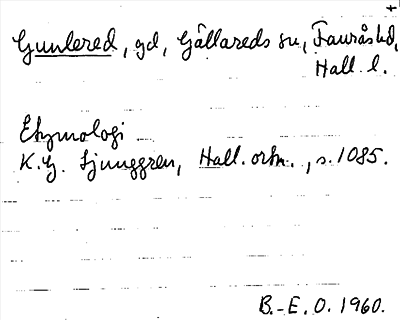 +
Gunlered, gd, Gällareds sn, Fauråshd,
Hall. l.
Etymologi
K.G. Ljunggren, Hall. ortn., s. 1085.
B.-E. O. 1960.